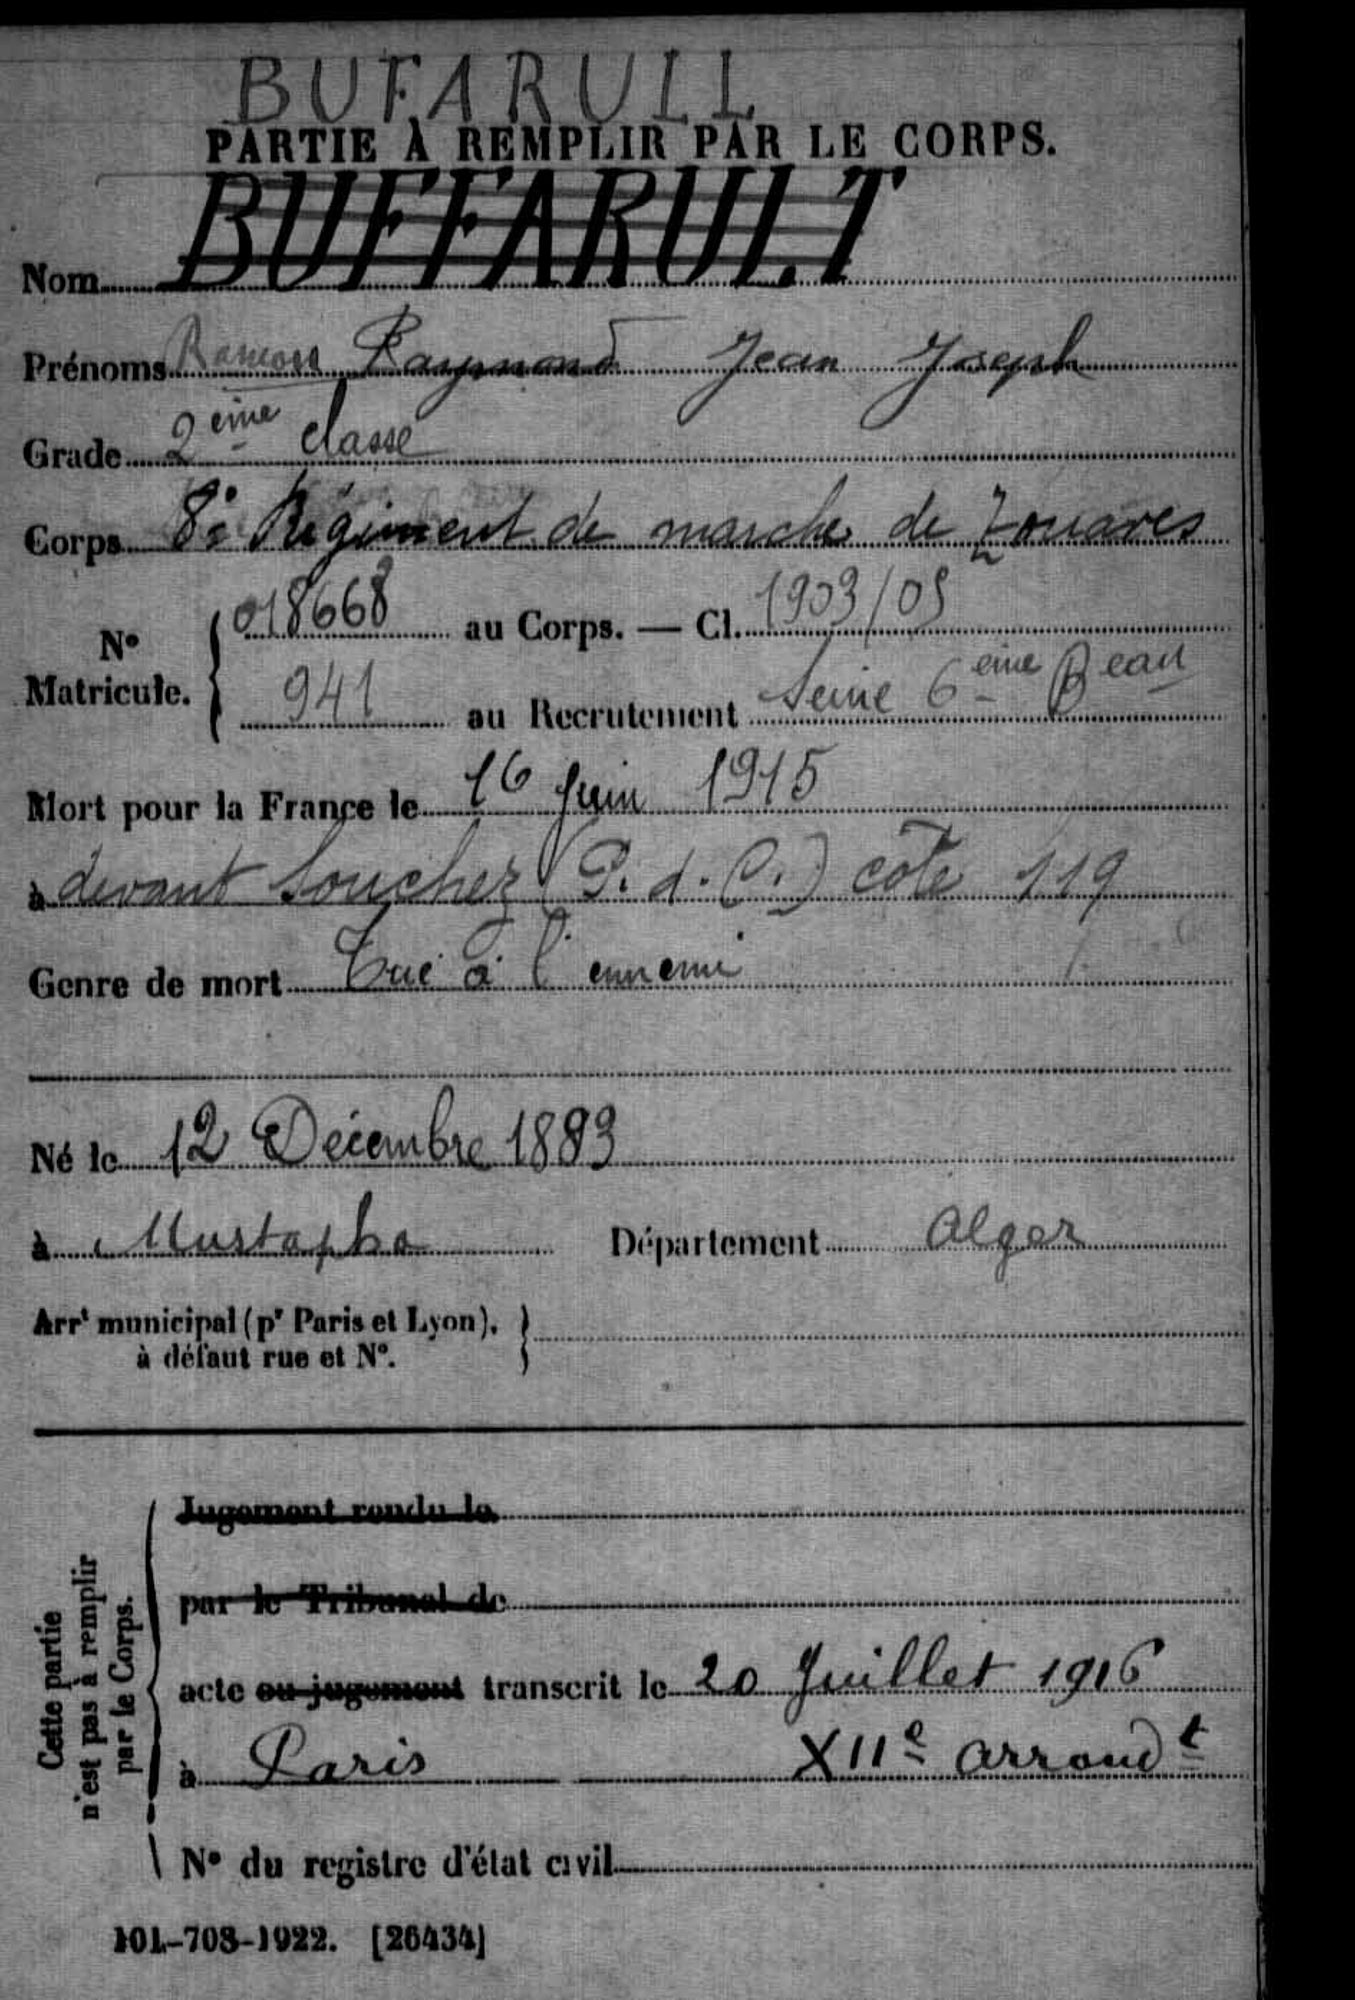 BUFARULL
PARTIE À REMPLIR PAR LE CORPS.
Nom BUFFARULT
Prénoms Ramon Raymond Jean Joseph
Grade 2ème classe
Corps 8e Régiment de marche de Zouaves
N° Matricule. { 018668 au Corps. — Cl. 1903/05
941 au Recrutement Seine 6ème Beau
Mort pour la France le 16 Juin 1915
à devant Souchez (P. d. C.) côte 119
Genre de mort Tué à l'ennemi
Né le 12 Décembre 1883
à Mustapha Département Alger
Arrt municipal (pr Paris et Lyon), }
à défaut rue et N°.
Cette partie
n'est pas à remplir
par le Corps.
Jugement rendu le
par le Tribunal de
acte ou jugement transcrit le 20 Juillet 1916
à Paris XIIe arrondt
N° du registre d'état civil
101-708-1922. [26434]